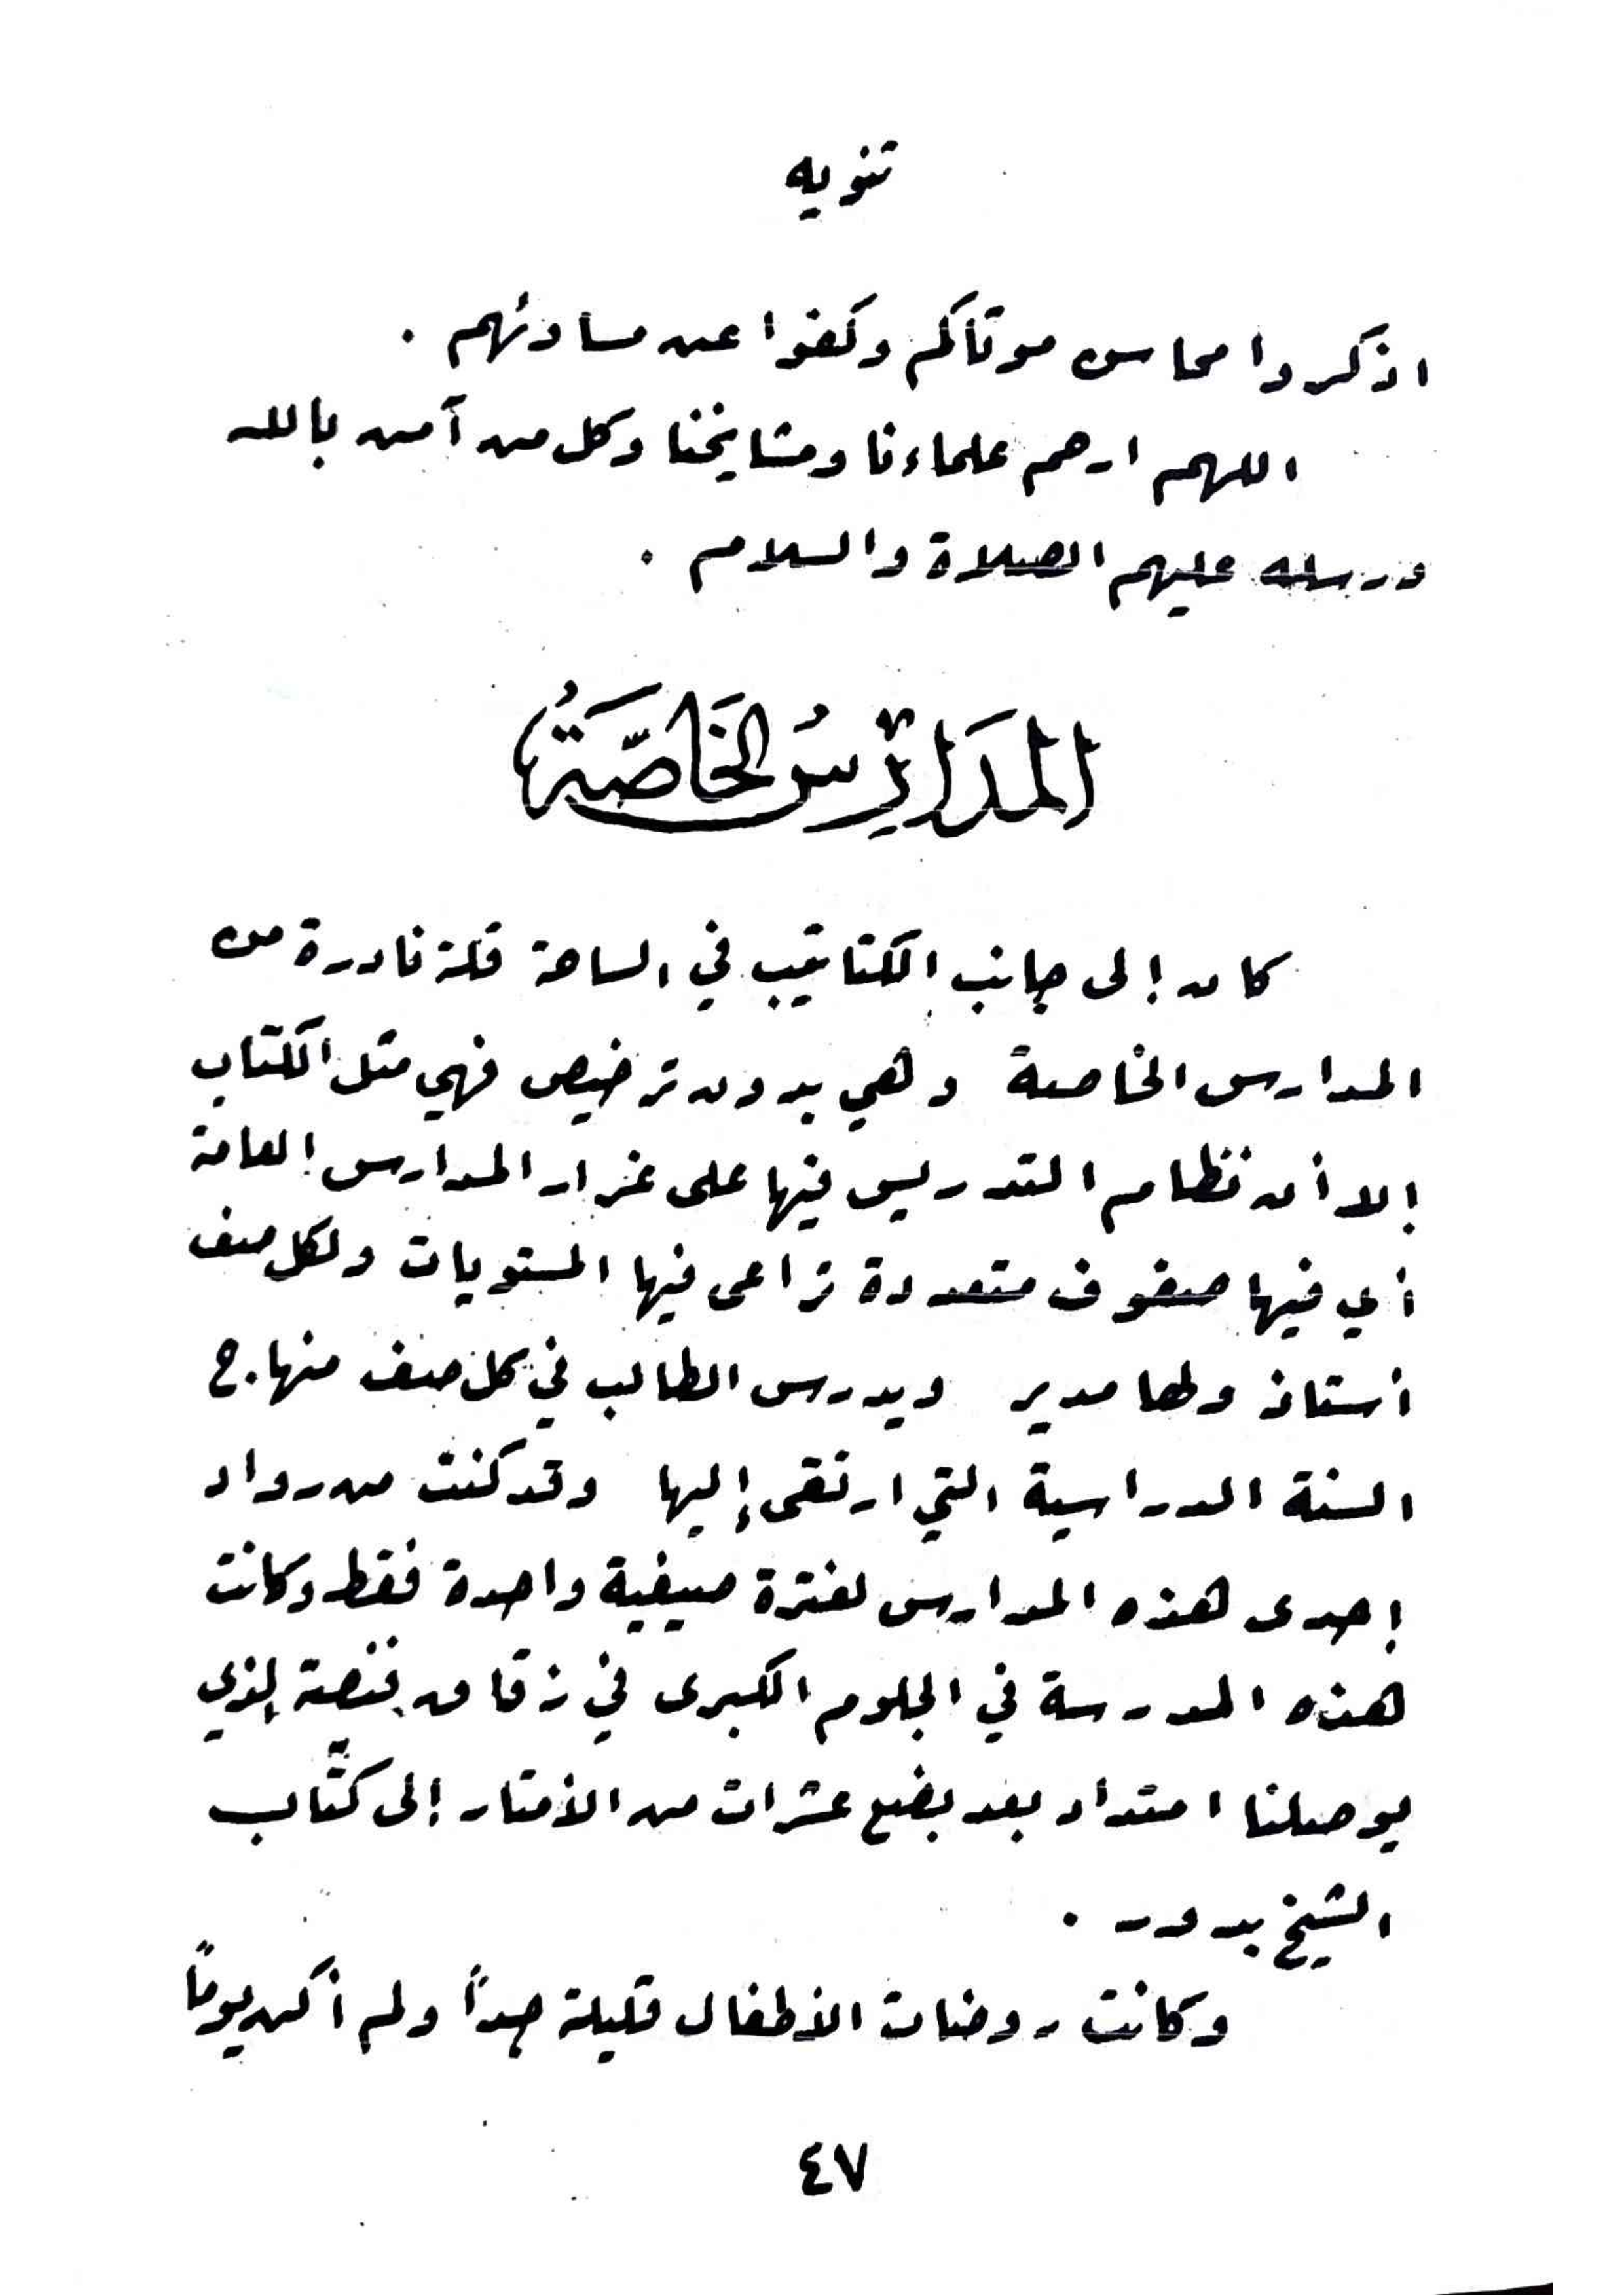 تنويه
اذكروا محاسن موتاكم وكفوا عن مساوئهم .
اللهم ارحم علماءنا ومشايخنا وكل من آمن بالله
ورسله عليهم الصلاة والسلام .
المَدَارِسُ الخَاصَّةُ
كان إلى جانب الكتاتيب في الساحة قلة نادرة من
المدارس الخاصة وهي بدون ترخيص فهي مثل الكتاب
إلا أن نظام التدريس فيها على غرار المدارس العامة
أي فيها صفوف متعددة تراعى فيها المستويات ولكل صف
أستاذ ولها مدير ويدرس الطالب في كل صف منهاج
السنة الدراسية التي ارتقى إليها وقد كنت من رواد
إحدى هذه المدارس لفترة صيفية واحدة فقط وكانت
هذه المدرسة في الجلوم الكبرى في زقاق الذي
يوصلنا امتداد بعد بضع عشرات من الأمتار إلى كتَّاب
الشيخ بدور .
وكانت روضات الأطفال قليلة جداً ولم أكن يوماً
٤٧